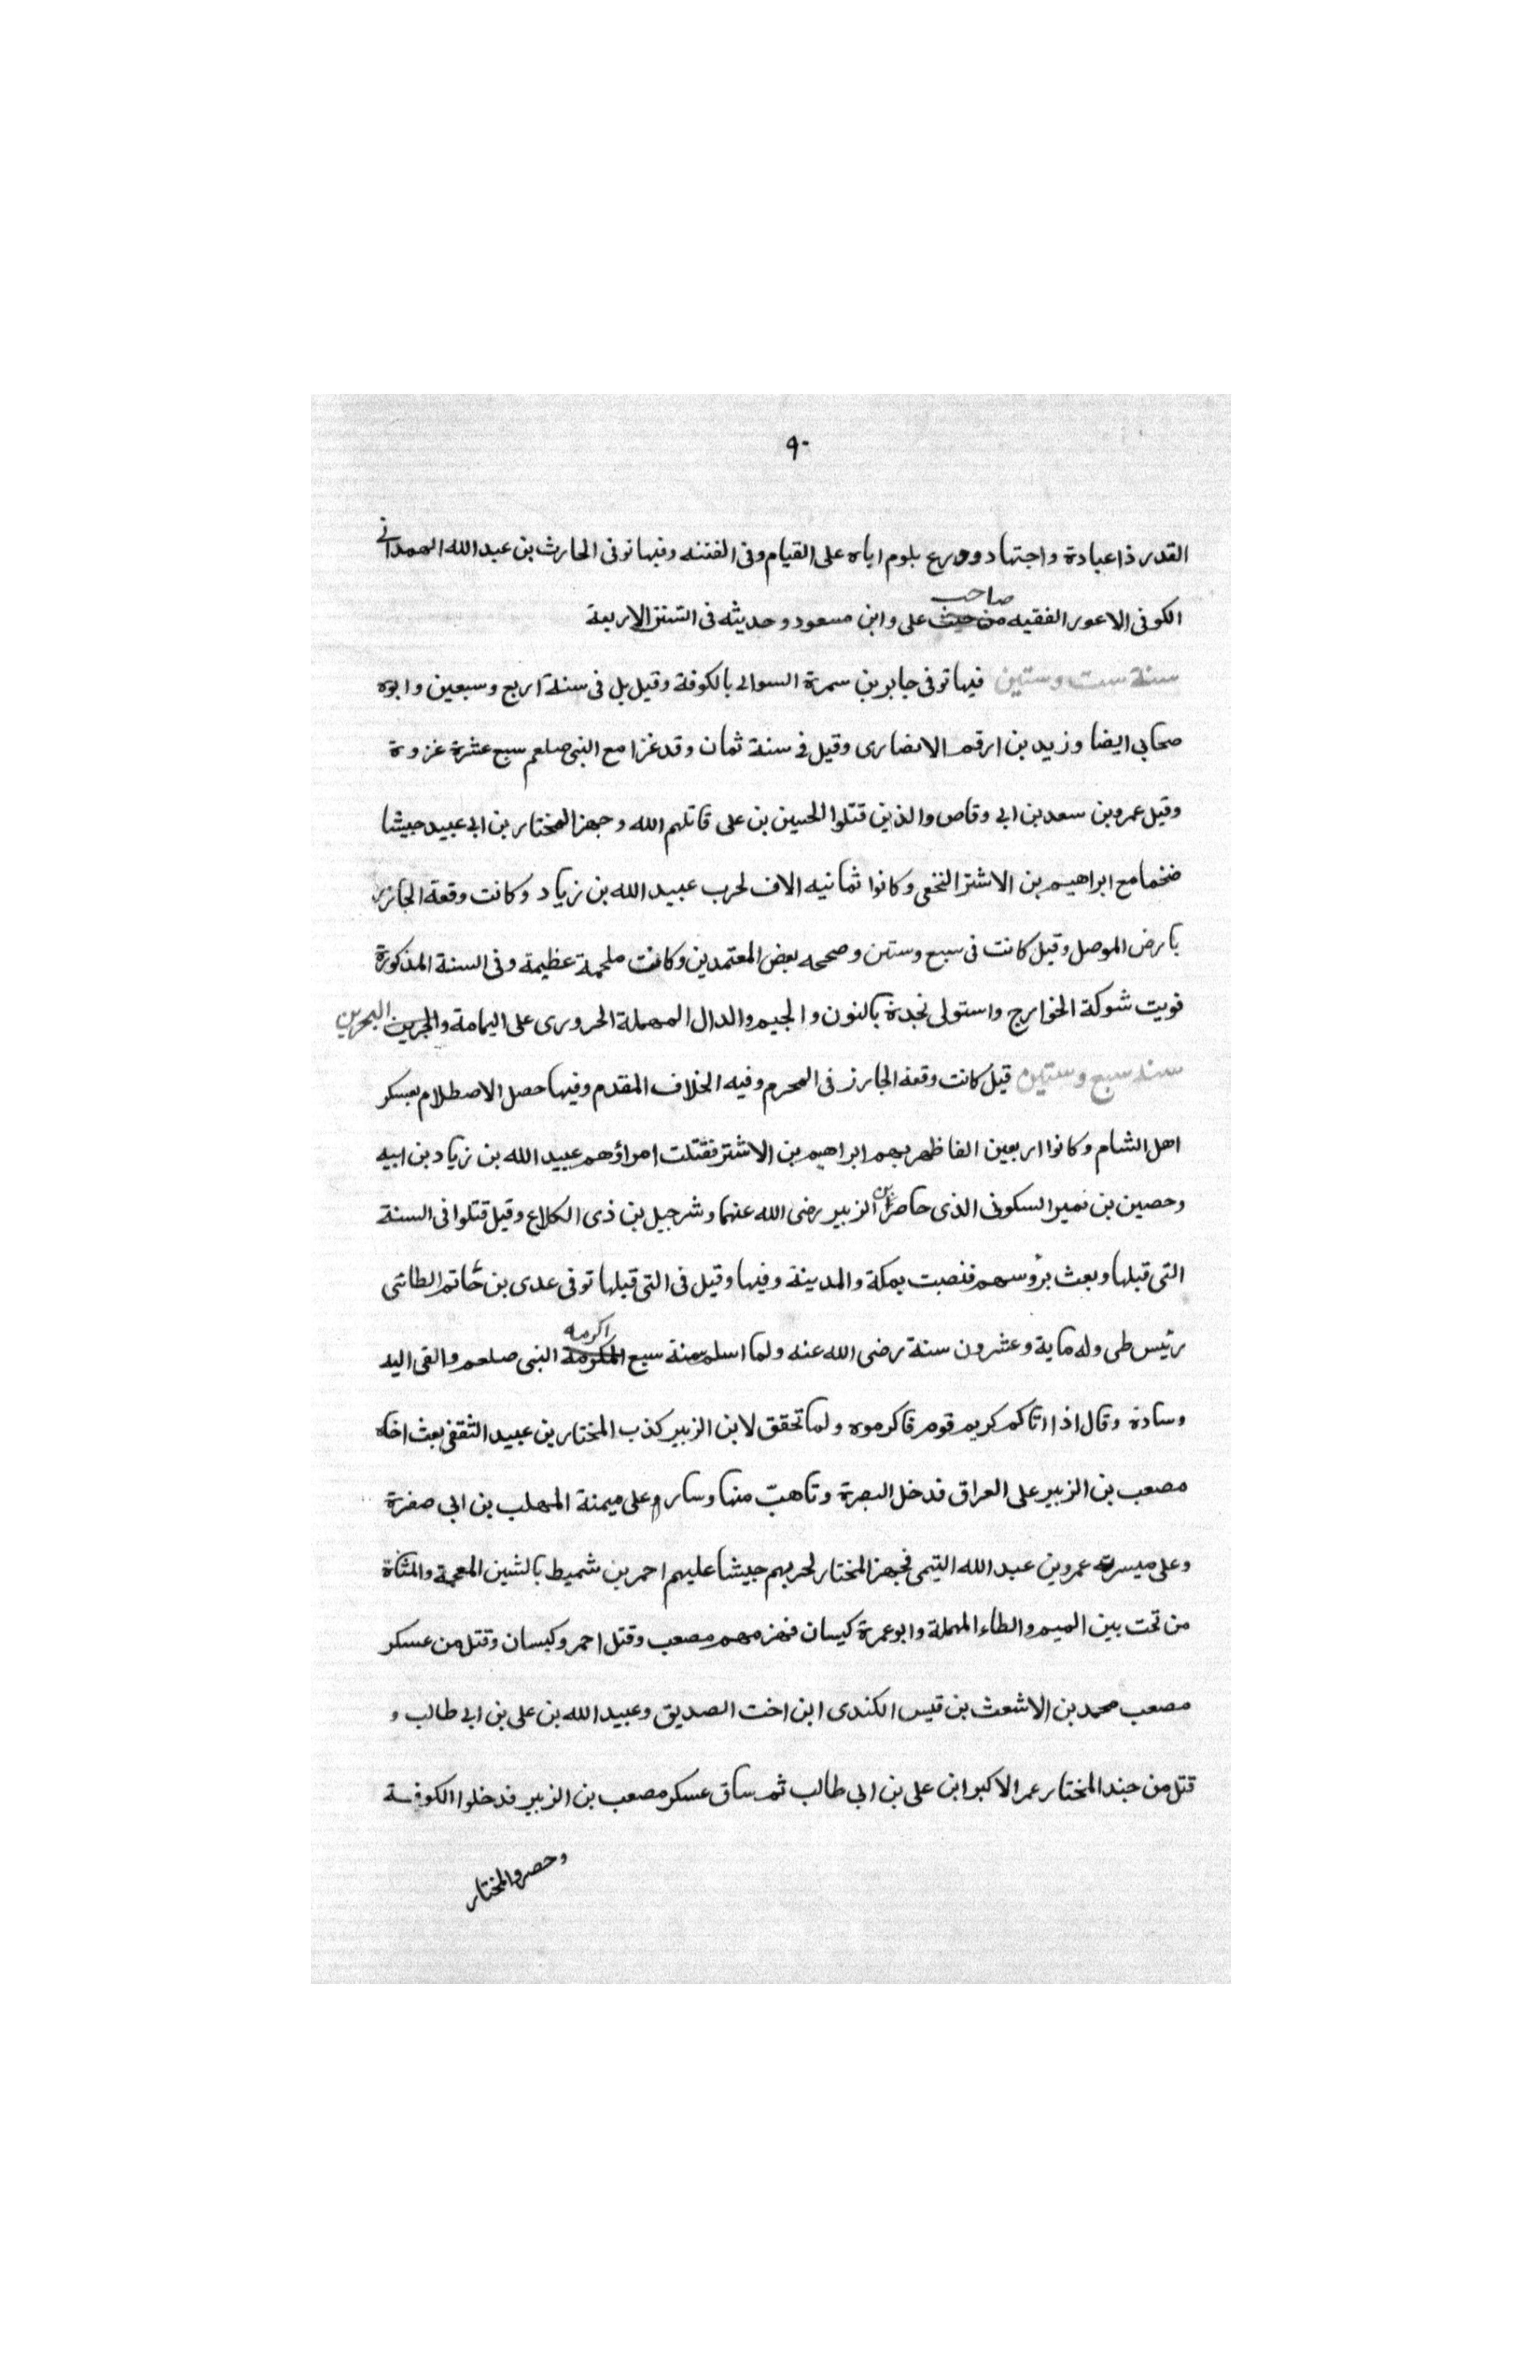 ٩٠
القدر ذا عبادة واجتهاد وورع بلوم اياه على القيام وفى الفتنه وفيها توفى الحارث بن عبد الله الهمدانى
الكوفى الاعور الفقيه صاحب على وابن مسعود وحديثه فى السنن الاربعة
سنة ست وستين فيها توفى جابر بن سمرة السوالى بالكوفة وقيل بل فى سنة اربع وسبعين وابوه
صحابى ايضا وزيد بن ارقم الانصارى وقيل فى سنة ثمان وقد غزا مع النبى صلعم سبع عشرة غزوة
وقيل عمرو بن سعد بن ابى وقاص والذين قتلوا الحسين بن على قاتلهم الله وجهز المختار بن ابى عبيد جيشا
ضخما مع ابراهيم بن الاشتر النخعى وكانوا ثمانيه الاف لحرب عبيد الله بن زياد وكانت وقعة الجازر
بارض الموصل وقيل كانت فى سبع وستين وصححه بعض المعتمدين وكانت ملحمة عظيمة وفى السنة المذكورة
قويت شوكة الخوارج واستولى نجدة بالنون والجيم والدال المهملة الحرورى على اليمامة والبحرين
سنة سبع وستين قيل كانت وقعة الجازر فى المحرم وفيه الخلاف المقدم وفيها حصل الاصطلام بعسكر
اهل الشام وكانوا اربعين الفا ظهر بهم ابراهيم بن الاشتر فقتلت امراؤهم عبيد الله بن زياد بن ابيه
وحصين بن نمير السكونى الذى حاصر ابن الزبير رضى الله عنهما وشرحبيل بن ذى الكلاع وقيل قتلوا فى السنة
التى قبلها وبعث برؤسهم فنصبت بمكة والمدينة وفيها وقيل فى التى قبلها توفى عدى بن حاتم الطائى
رئيس طى وله ماية وعشرون سنة رضى الله عنه ولما اسلم سنة سبع اكرمه النبى صلعم والقى اليه
وسادة وقال اذا اتاكم كريم قوم فاكرموه ولما تحقق لابن الزبير كذب المختار بن عبيد الثقفى بعث اخاه
مصعب بن الزبير على العراق فدخل البصرة وتاهبّ منها وسار وعلى ميمنة المهلب بن ابى صفرة
وعلى ميسرته عمرو بن عبد الله التيمى فجهز المختار لحربهم جيشا عليهم احمر بن شميط بالشين المعجمة والمثناة
من تحت بين الميم والطاء المهملة وابو عمرة كيسان فهزمهم مصعب وقتل احمر وكيسان وقتل من عسكر
مصعب محمد بن الاشعث بن قيس الكندى ابن اخت الصديق وعبيد الله بن على بن ابى طالب و
قتل من جند المختار عمر الاكبر ابن على بن ابى طالب ثم ساق عسكر مصعب بن الزبير فدخلوا الكوفة
وحصروا المختار